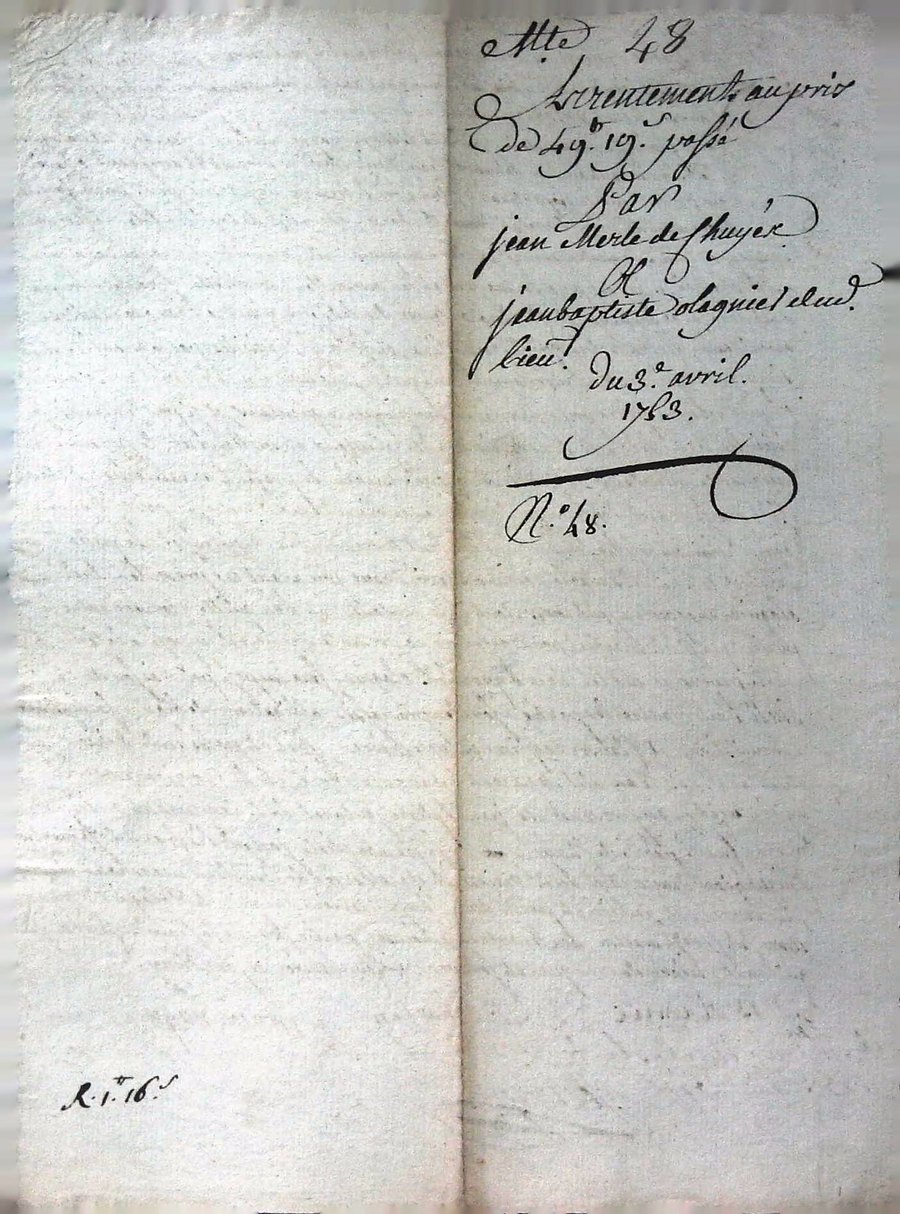 Mte 48
Arrentements au prix
de 49tt. 19s. passé
Par
jean Merle de Chuyer
Et
jean baptiste olagnier dud.
lieu.
du 3e. avril.
1753.
N.o 48.
R. 1tt. 16s